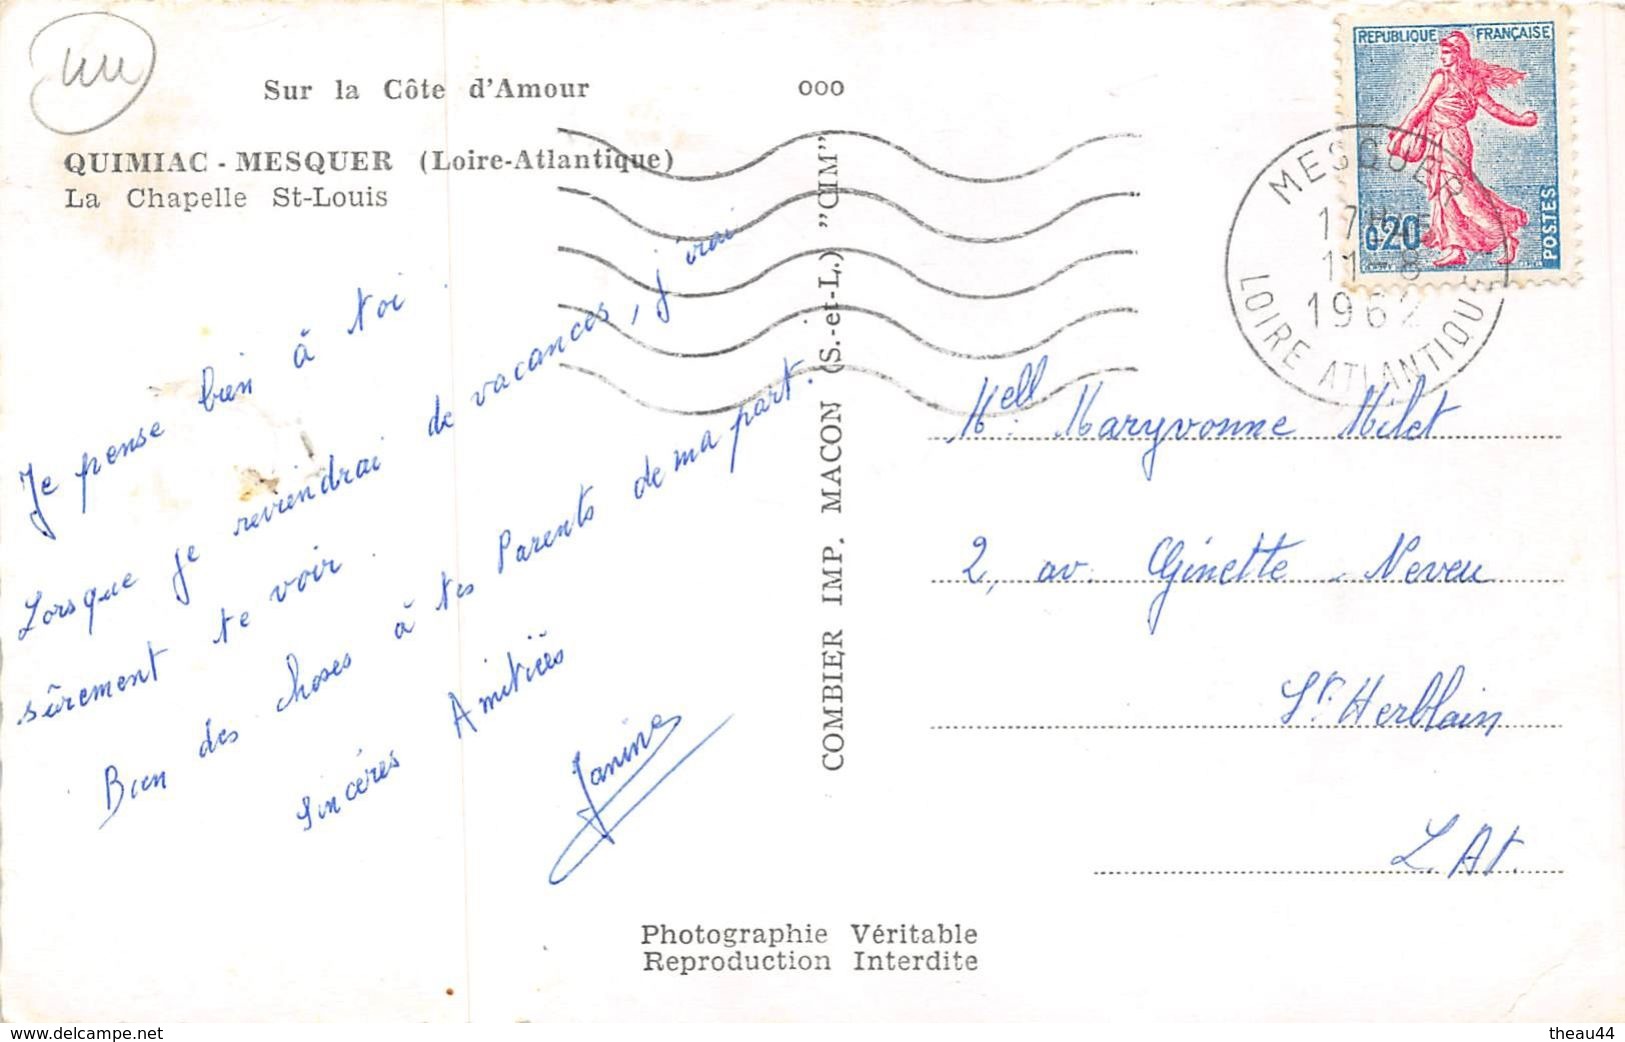 Sur la Côte d'Amour
QUIMIAC - MESQUER (Loire-Atlantique)
La Chapelle St-Louis
Je pense bien à toi.
Lorsque je reviendrai de vacances, j'irai
sûrement te voir.
Bien des choses à tes Parents de ma part.
Sincères Amitiés
Janine
ooo
COMBIER IMP. MACON (S.-et-L.) "CIM"
REPUBLIQUE FRANÇAISE
0,20
POSTES
MESQUER
17H
11-8
1962
LOIRE ATLANTIQUE
Mell. Maryvonne Milet
2, av. Ginette-Neveu
St. Herblain
L. At.
Photographie Véritable
Reproduction Interdite
www.delcampe.net
theau44